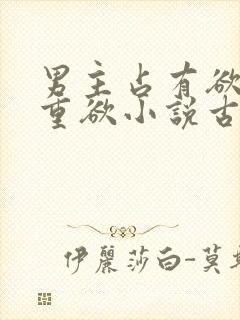 男主占有欲
重欲小説古
伊麗莎白-莫